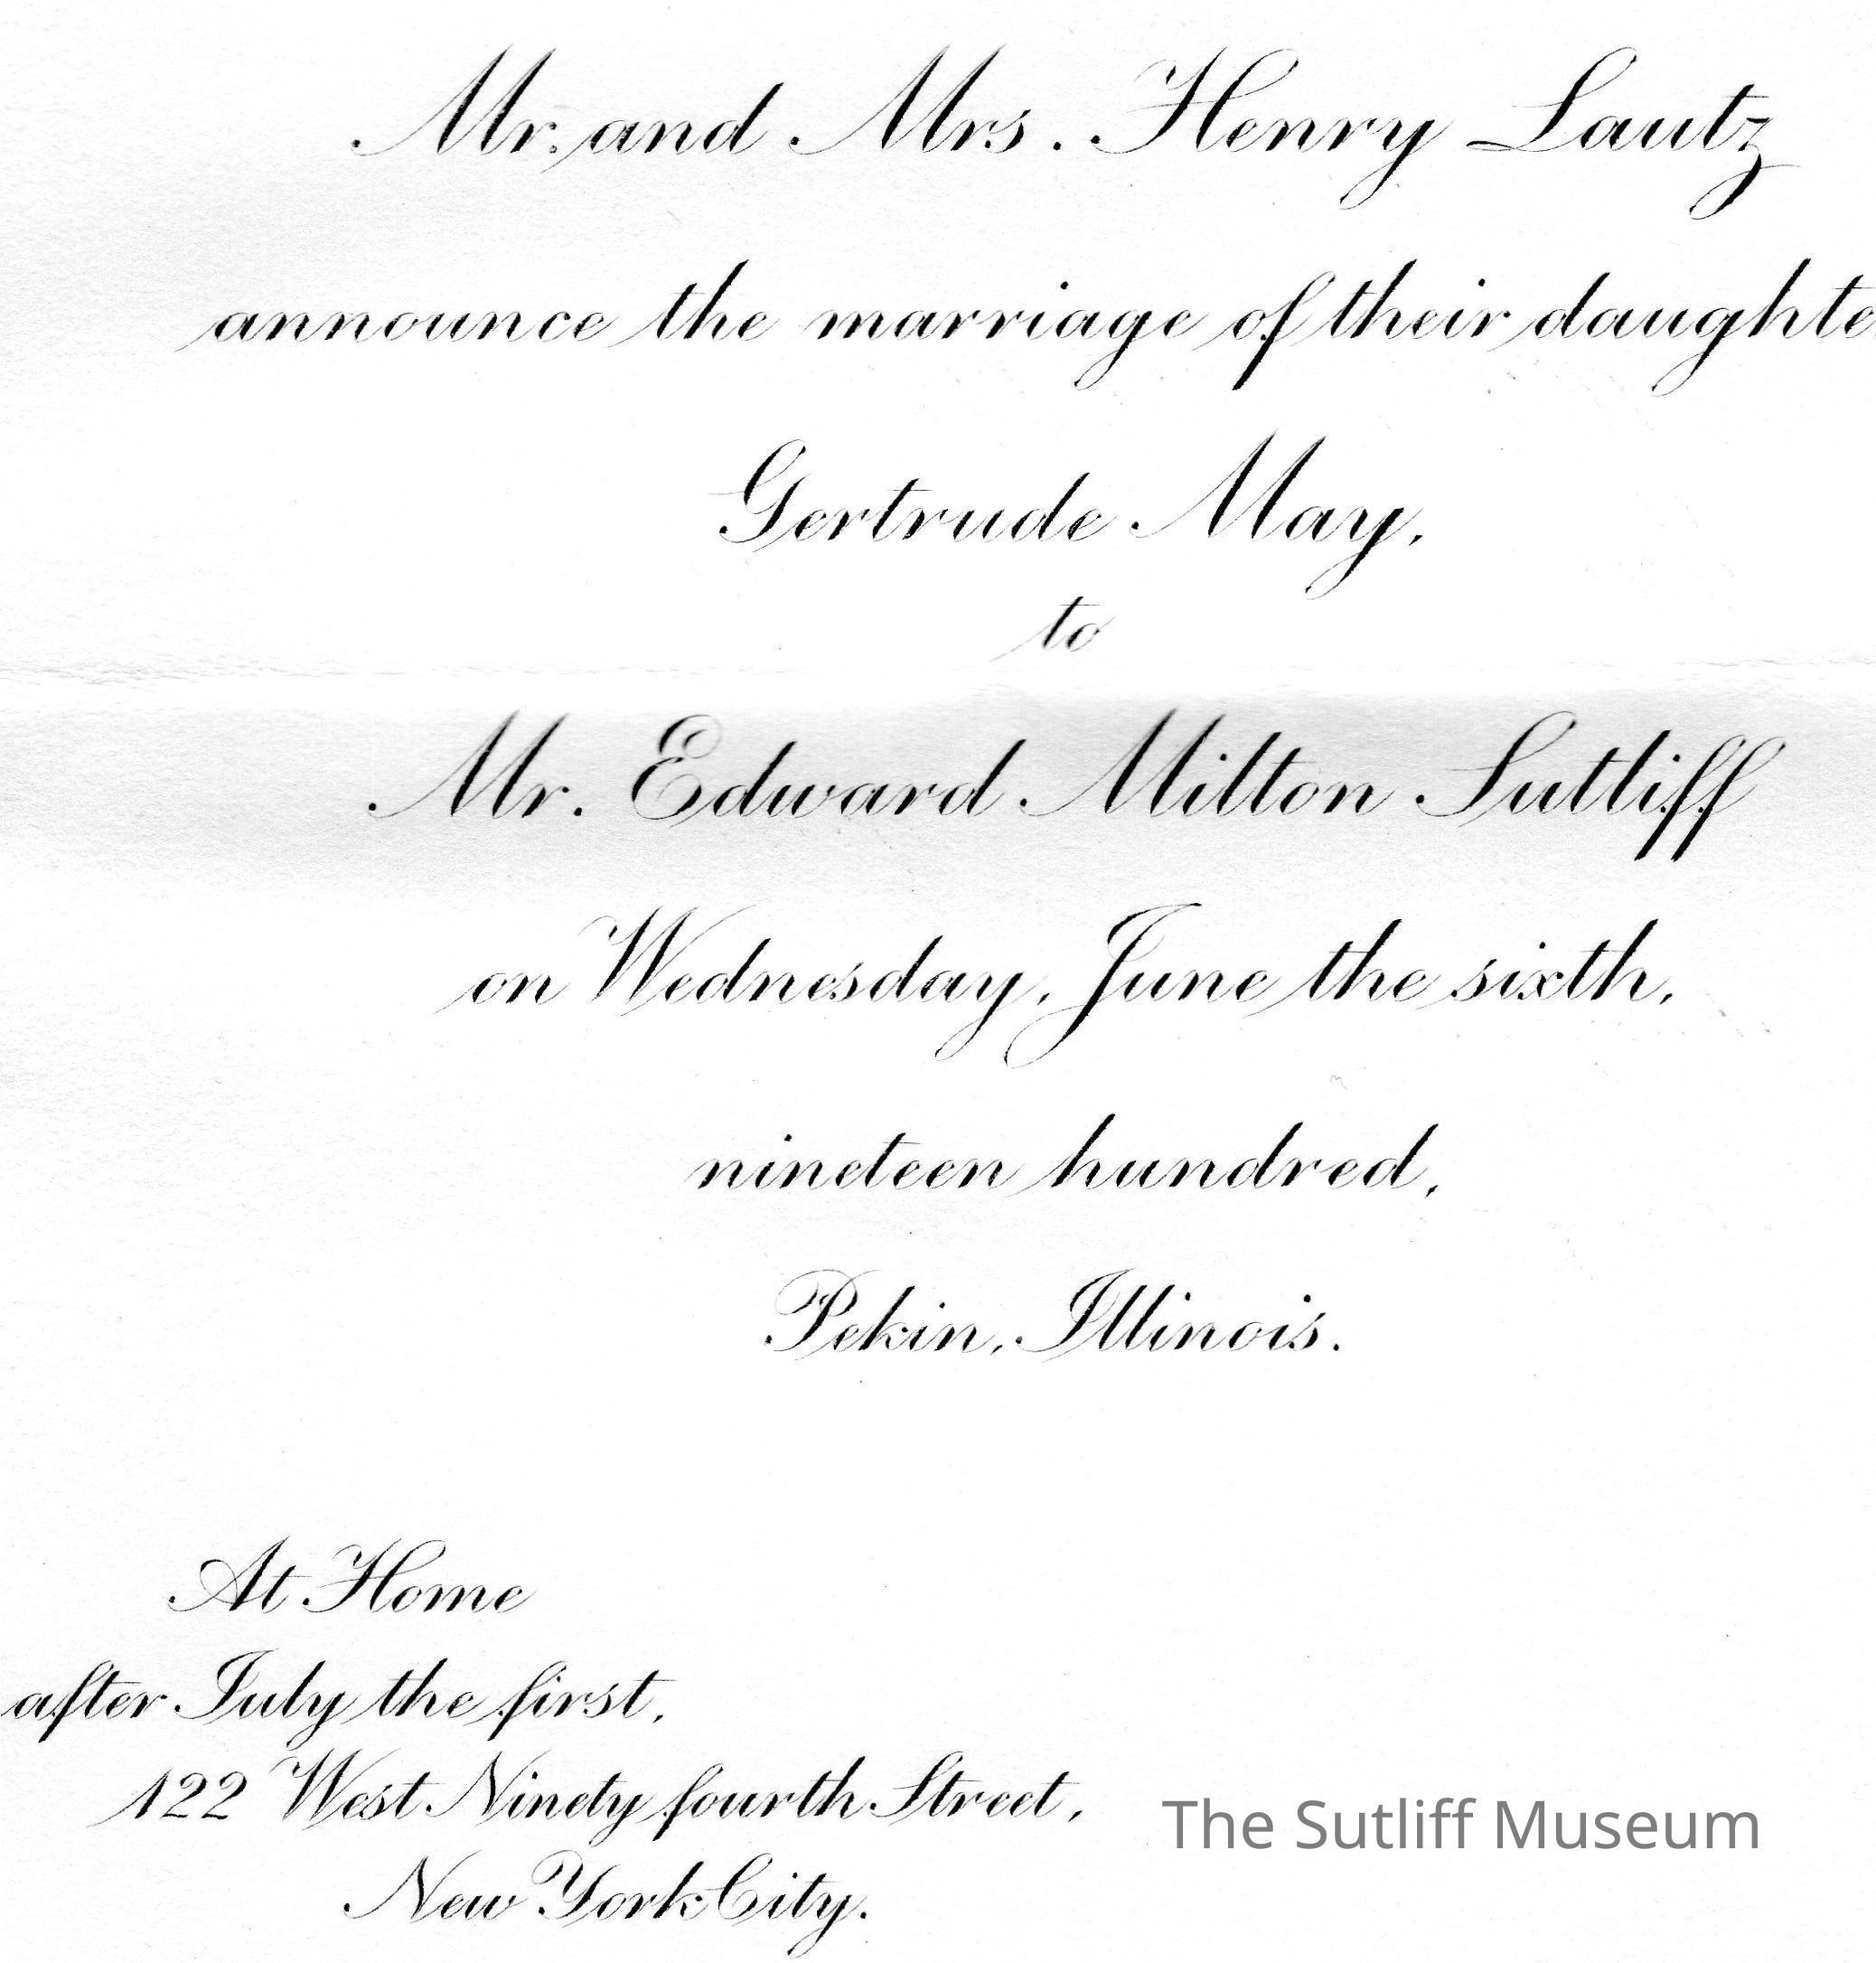 Mr. and Mrs. Henry Lautz
announce the marriage of their daughte
Gertrude May,
to
Mr. Edward Milton Sutliff
on Wednesday, June the sixth,
nineteen hundred,
Pekin, Illinois.
At Home
after July the first,
122 West Ninety fourth Street,
New York City.
The Sutliff Museum